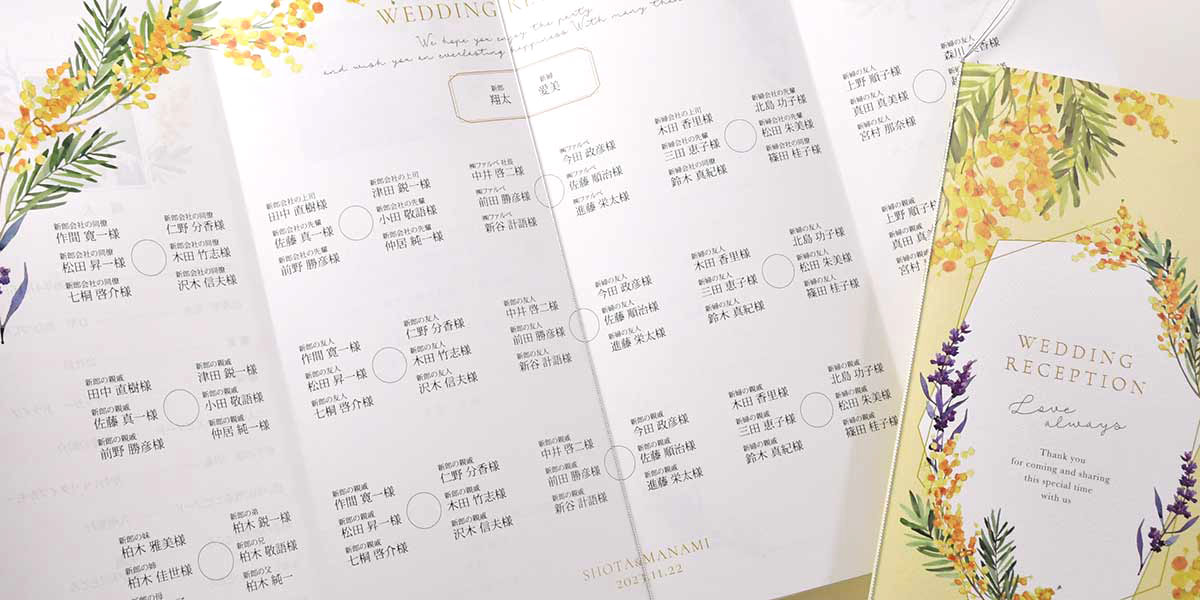 WEDDING
We hope you enjoy the party
and wish you an everlasting happiness With many
新郎
翔太
新婦
愛美
新郎会社の同僚
作間 寛一様
新郎会社の同僚
松田 昇一様
新郎会社の同僚
七桐 啓介様
新郎会社の同僚
仁野 分香様
新郎会社の同僚
木田 竹志様
新郎会社の同僚
沢木 信夫様
新郎会社の上司
田中 直樹様
新郎会社の先輩
佐藤 真一様
新郎会社の先輩
前野 勝彦様
新郎会社の上司
津田 鋭一様
新郎会社の先輩
小田 敬語様
新郎会社の先輩
仲居 純一様
㈱ファルベ 社長
中井 啓二様
㈱ファルベ
前田 勝彦様
㈱ファルベ
新谷 計語様
㈱ファルベ
今田 政彦様
㈱ファルベ
佐藤 順治様
㈱ファルベ
進藤 栄太様
新婦会社の上司
木田 香里様
新婦会社の先輩
三田 恵子様
新婦会社の同僚
鈴木 真紀様
新婦会社の先輩
北島 功子様
新婦会社の先輩
松田 朱美様
新婦会社の同僚
篠田 桂子様
新婦の友人
上野 順子様
新婦の友人
真田 真美様
新婦の友人
宮村 那奈様
新婦の友人
森川
香様
新郎の親戚
田中 直樹様
新郎の親戚
佐藤 真一様
新郎の親戚
前野 勝彦様
新郎の親戚
津田 鋭一様
新郎の親戚
小田 敬語様
新郎の親戚
仲居 純一様
新郎の友人
作間 寛一様
新郎の友人
松田 昇一様
新郎の友人
七桐 啓介様
新郎の友人
仁野 分香様
新郎の友人
木田 竹志様
新郎の友人
沢木 信夫様
新郎の友人
中井 啓二様
新郎の友人
前田 勝彦様
新郎の友人
新谷 計語様
新婦の友人
今田 政彦様
新婦の友人
佐藤 順治様
新婦の友人
進藤 栄太様
新婦の友人
木田 香里様
新婦の友人
三田 恵子様
新婦の友人
鈴木 真紀様
新婦の友人
北島 功子様
新婦の友人
松田 朱美様
新婦の友人
篠田 桂子様
新婦の親戚
上野 順子
新婦の親戚
真田 真
新婦の親戚
宮村
新郎の妹
柏木 雅美様
新郎の姉
柏木 佳世様
新郎の母
新郎の弟
柏木 鋭一様
新郎の兄
柏木 敬語様
新郎の父
柏木 純一
新郎の親戚
作間 寛一様
新郎の親戚
松田 昇一様
新郎の親戚
七桐 啓介様
新郎の親戚
仁野 分香様
新郎の親戚
木田 竹志様
新郎の親戚
沢木 信夫様
新郎の親戚
中井 啓二様
新郎の親戚
前田 勝彦様
新郎の親戚
新谷 計語様
新婦の親戚
今田 政彦様
新婦の親戚
佐藤 順治様
新婦の親戚
進藤 栄太様
新婦の親戚
木田 香里様
新婦の親戚
三田 恵子様
新婦の親戚
鈴木 真紀様
新婦の親戚
北島 功子様
新婦の親戚
松田 朱美様
新婦の親戚
篠田 桂子様
SHOTA&MANAMI
2023.11.22
WEDDING
RECEPTION
Love
always
Thank you
for coming and sharing
this special time
with us